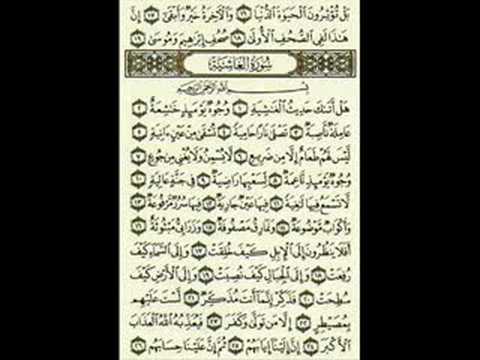 بَلْ تُؤْثِرُونَ ٱلْحَيَوٰةَ ٱلدُّنْيَا ١٦ وَٱلْءَاخِرَةُ خَيْرٌ وَأَبْقَىٰٓ ١٧ إِنَّ
هَـٰذَا لَفِى ٱلصُّحُفِ ٱلْأُولَىٰ ١٨ صُحُفِ إِبْرَٰهِيمَ وَمُوسَىٰ ١٩
سُورَةُ الغَاشِيَةِ
بِسْمِ ٱللَّهِ ٱلرَّحْمَـٰنِ ٱلرَّحِيمِ
هَلْ أَتَىٰكَ حَدِيثُ ٱلْغَـٰشِيَةِ ١ وُجُوهٌ يَوْمَئِذٍ خَـٰشِعَةٌ ٢
عَامِلَةٌ نَّاصِبَةٌ ٣ تَصْلَىٰ نَارًا حَامِيَةً ٤ تُسْقَىٰ مِنْ عَيْنٍ ءَانِيَةٍ ٥
لَّيْسَ لَهُمْ طَعَامٌ إِلَّا مِن ضَرِيعٍ ٦ لَّا يُسْمِنُ وَلَا يُغْنِى مِن جُوعٍ ٧
وُجُوهٌ يَوْمَئِذٍ نَّاعِمَةٌ ٨ لِّسَعْيِهَا رَاضِيَةٌ ٩ فِى جَنَّةٍ عَالِيَةٍ ١٠
لَّا تَسْمَعُ فِيهَا لَـٰغِيَةً ١١ فِيهَا عَيْنٌ جَارِيَةٌ ١٢ فِيهَا سُرُرٌ مَّرْفُوعَةٌ ١٣
وَأَكْوَابٌ مَّوْضُوعَةٌ ١٤ وَنَمَارِقُ مَصْفُوفَةٌ ١٥ وَزَرَابِىُّ مَبْثُوثَةٌ ١٦
أَفَلَا يَنظُرُونَ إِلَى ٱلْإِبِلِ كَيْفَ خُلِقَتْ ١٧ وَإِلَى ٱلسَّمَآءِ كَيْفَ
رُفِعَتْ ١٨ وَإِلَى ٱلْجِبَالِ كَيْفَ نُصِبَتْ ١٩ وَإِلَى ٱلْأَرْضِ كَيْفَ
سُطِحَتْ ٢٠ فَذَكِّرْ إِنَّمَآ أَنتَ مُذَكِّرٌ ٢١ لَّسْتَ عَلَيْهِم
بِمُصَيْطِرٍ ٢٢ إِلَّا مَن تَوَلَّىٰ وَكَفَرَ ٢٣ فَيُعَذِّبُهُ ٱللَّهُ ٱلْعَذَابَ
ٱلْأَكْبَرَ ٢٤ إِنَّ إِلَيْنَآ إِيَابَهُمْ ٢٥ ثُمَّ إِنَّ عَلَيْنَا حِسَابَهُم ٢٦